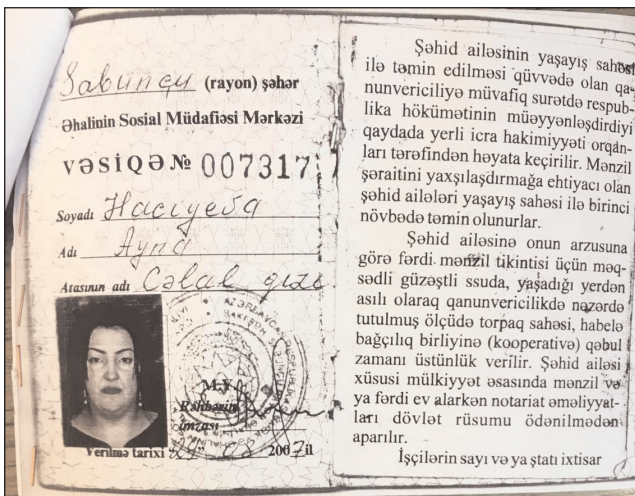 Sabunçu (rayon) şəhər
Əhalinin Sosial Müdafiəsi Mərkəzi
VƏSİQƏ № 007317
Soyadı Hacıyeva
Adı Ayna
Atasının adı Cəlal qızı
M.Y.
Rəhbərin
imzası
Verilmə tarixi 2007 il
Şəhid ailəsinin yaşayış sahəsi
ilə təmin edilməsi qüvvədə olan qa-
nunvericiliyə müvafiq surətdə respub-
lika hökümətinin müəyyənləşdirdiyi
qaydada yerli icra hakimiyyəti orqan-
ları tərəfindən həyata keçirilir. Mənzil
şəraitini yaxşılaşdırmağa ehtiyacı olan
şəhid ailələri yaşayış sahəsi ilə birinci
növbədə təmin olunurlar.
Şəhid ailəsinə onun arzusuna
görə fərdi mənzil tikintisi üçün məq-
sədli güzəştli ssuda, yaşadığı yerdən
asılı olaraq qanunvericilikdə nəzərdə
tutulmuş ölçüdə torpaq sahəsi, habelə
bağçılıq birliyinə (kooperativə) qəbul
zamanı üstünlük verilir. Şəhid ailəsi
xüsusi mülkiyyət əsasında mənzil və
ya fərdi ev alarkən notariat əməliyyat-
ları dövlət rüsumu ödənilmədən
aparılır.
İşçilərin sayı və ya ştatı ixtisar